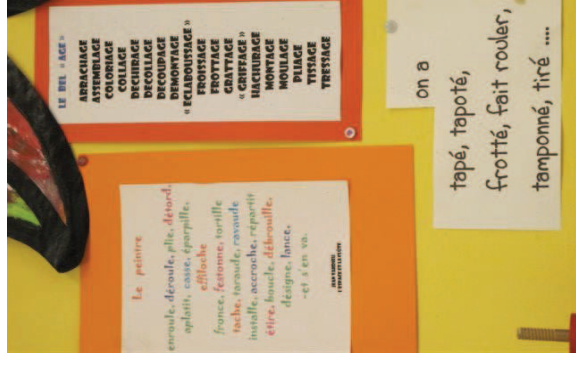 LE BEL « AGE »
ARRACHAGE
ASSEMBLAGE
COLORIAGE
COLLAGE
DECHIRAGE
DECOLLAGE
DECOUPAGE
DEMONTAGE
« ECLABOUSSAGE »
FROISSAGE
FROTTAGE
GRATTAGE
« GRIFFAGE »
HACHURAGE
MONTAGE
MOULAGE
PLIAGE
TISSAGE
TRESSAGE
on a
tapé, tapoté,
frotté, fait rouler,
tamponné, tiré ....
Le peintre
enroule, déroule, plie, détord,
aplatit, casse, éparpille,
effiloche
fronce, festonne, tortille
tache, taraude, ravaude
installe, accroche, répartit
étire, boucle, débrouille,
désigne, lance,
-et s'en va.
JEAN TARDIEU